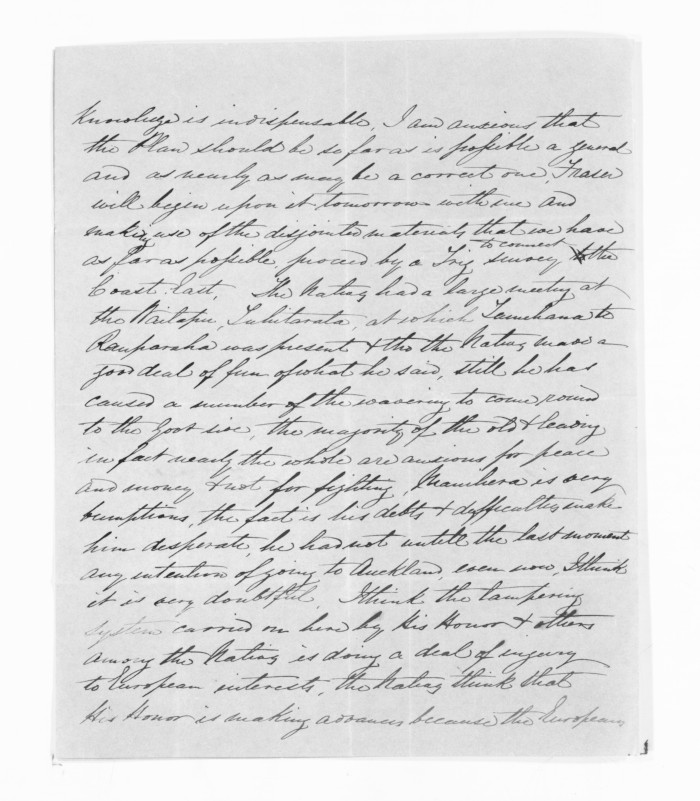 Knowledge is indispensable, I am anxious that
the Plan should be so far as is possible a general
and as nearly as may be a correct one, Fraser
will begin upon it tomorrow with me and
making use of the disjointed materials that we have
as far as possible proceed by a Trig survey to connect the
Coast East, The Natives had a large meeting at
the Waitapu, Tuhitarata, at which Tamihana te
Rauparaha was present & tho the Natives made a
good deal of fun of what he said, still he has
caused a number of the wavering to come round
to the Govt side, the majority of the old & leading
in fact nearly the whole are anxious for peace
and money & not for fighting, Manihera is very
bumptious, the fact is his debts & difficulties make
him desperate, he had not untill the last moment
any intention of going to Auckland, even now, I think
it is very doubtful, I think the tampering
system carried on here by His Honor & others
among the Natives is doing a deal of injury
to European interests, the Natives think that
His Honor is making advances because the Europeans